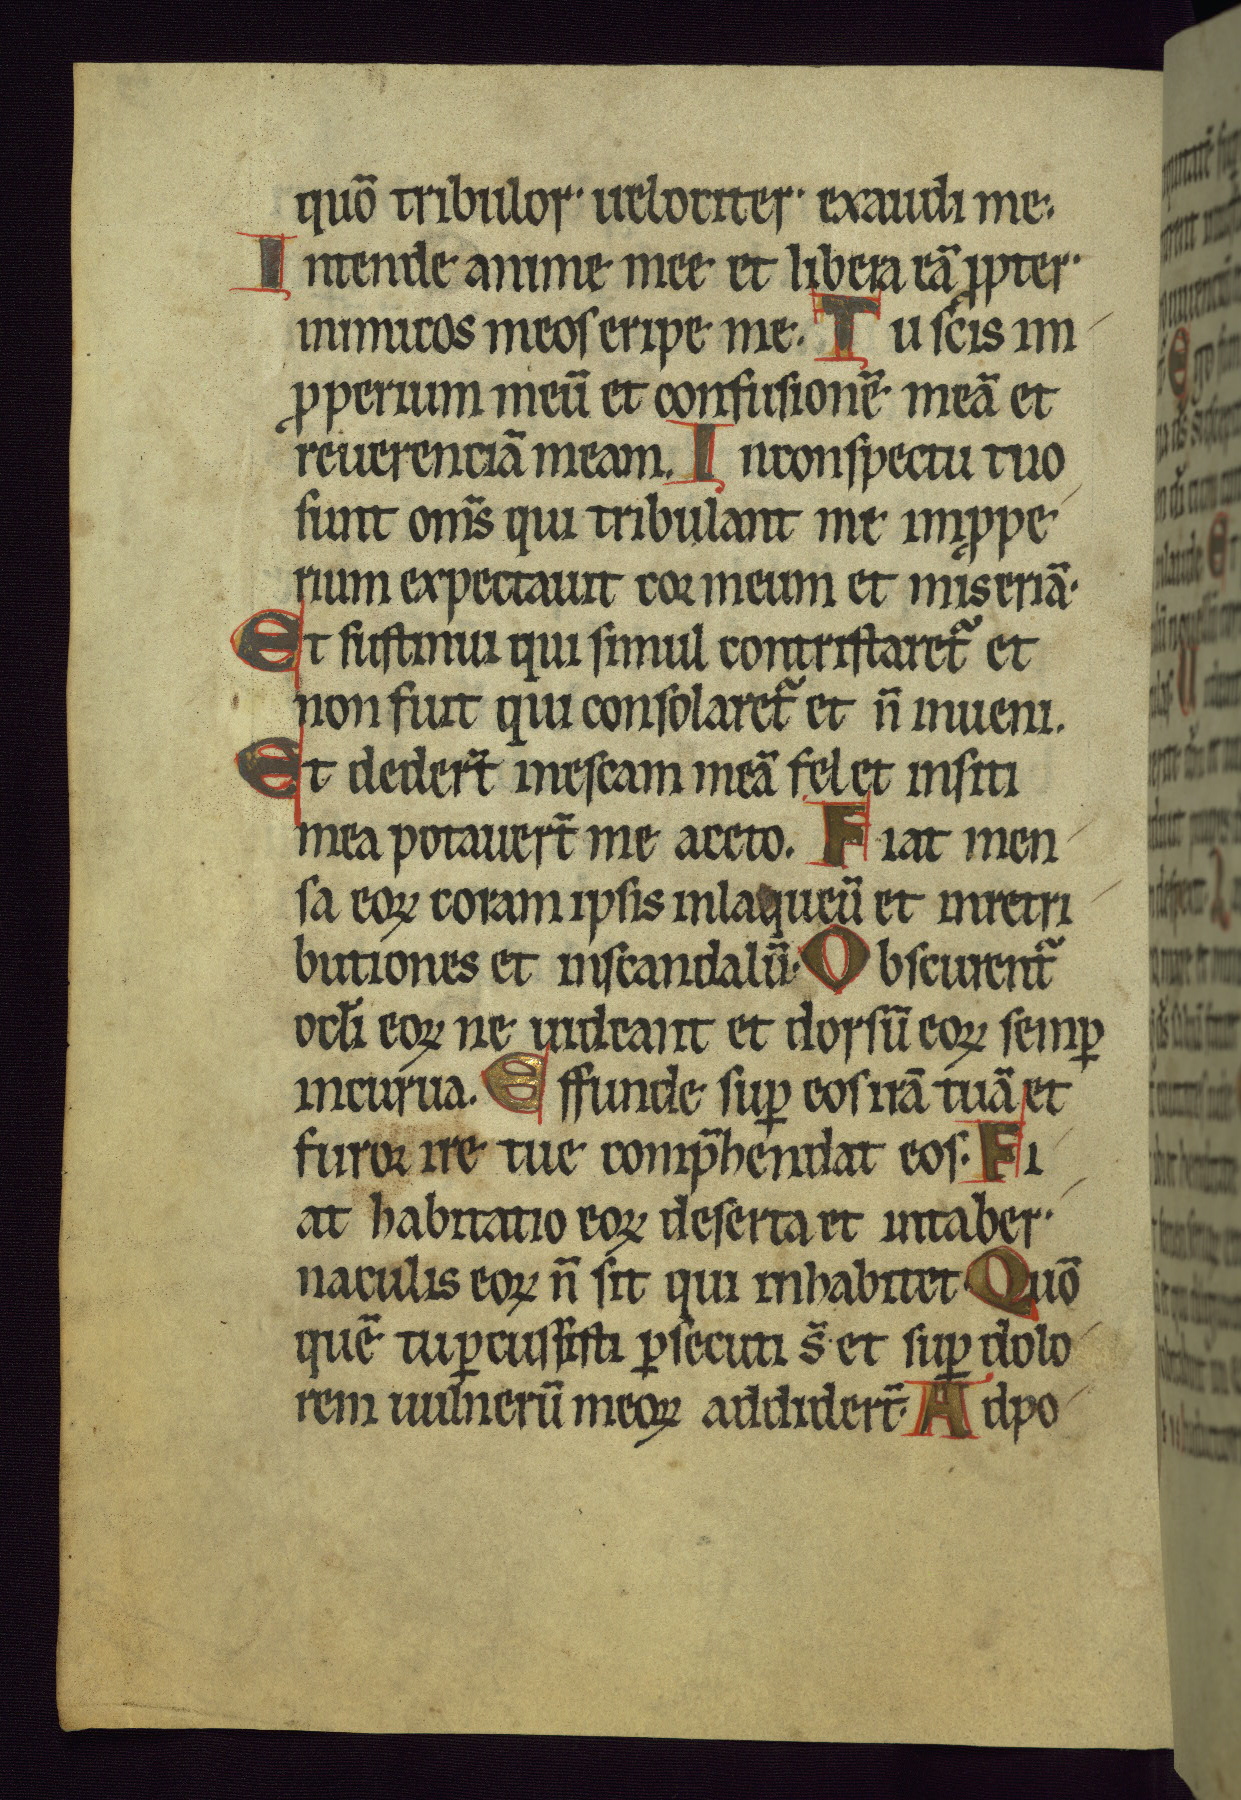 quō tribulor uelociter exaudi me.
Intende anime mee et libera eā ꝓpter
inimicos meos eripe me. Tu scis im
ꝓperium meū et confusionē meā et
reuerenciā meam. Inconspectu tuo
sunt om̄s qui tribulant me imꝓpe
rium expectauit cor meum et miseriā.
Et sustinui qui simul contristaret᷑ et
non fuit qui consolaret᷑ et n̄ inueni.
Et dedert̄ inescam meā fel et insiti
mea potauert̄ me aceto. Fiat men
sa eoꝝ coram ipsis inlaqueū et inretri
butiones et inscandalū. Obscurent᷑
ocl̄i eoꝝ ne uideant et dorsū eoꝝ semꝑ
incurua. Effunde suꝑ eos irā tuā et
furor ire tue comp̄hendat eos. Fi
at habitatio eoꝝ deserta et intaber
naculis eoꝝ n̄ sit qui inhabitet Quō
quē tu ꝑcussisti ꝑsecuti s̄ et suꝑ dolo
rem uulnerū meoꝝ addidert̄. Adpo